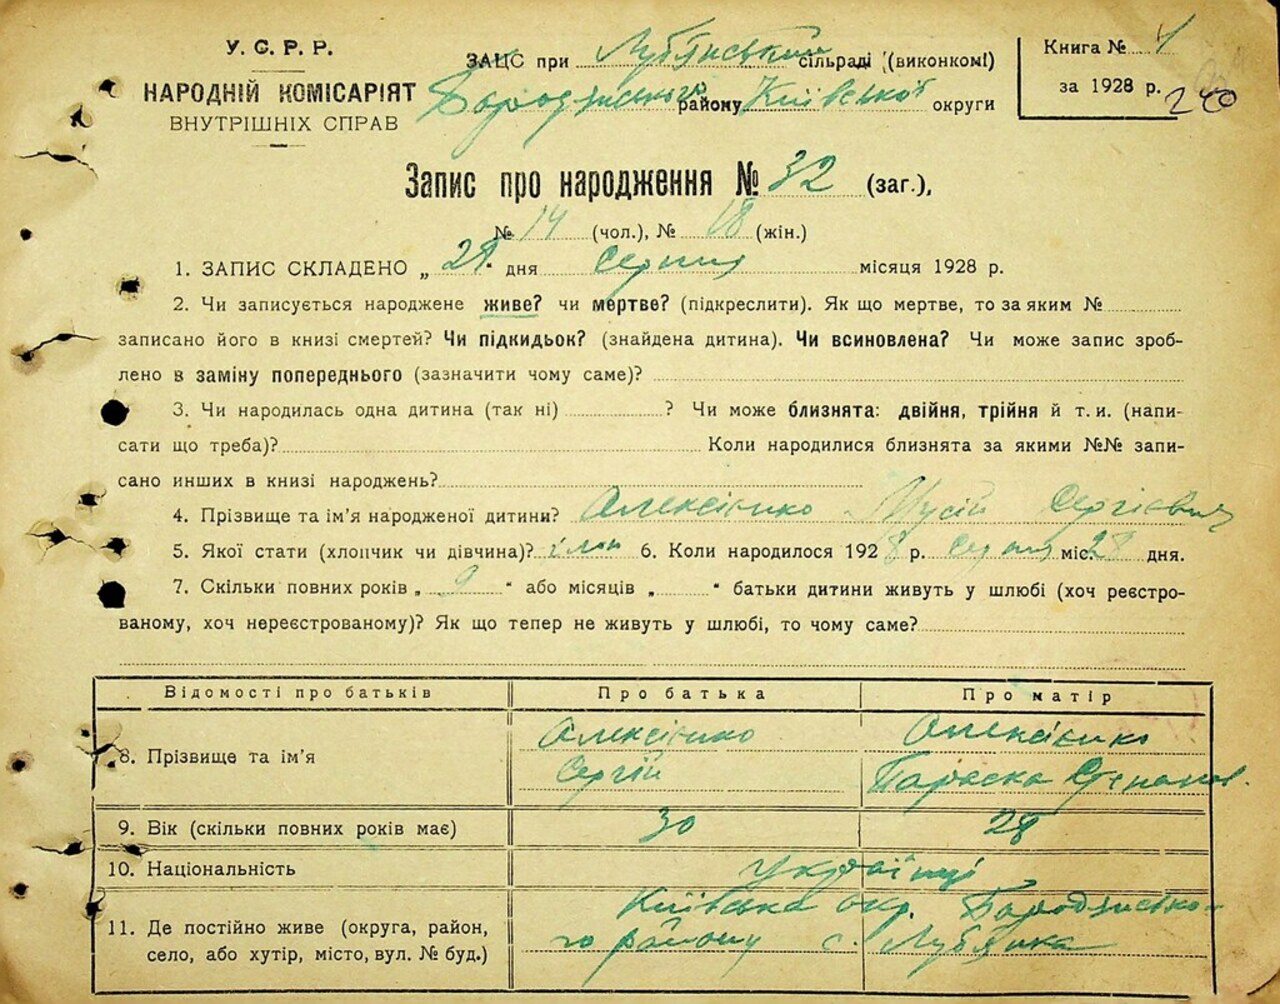 У. С. Р. Р.
НАРОДНІЙ КОМІСАРІЯТ
ВНУТРІШНІХ СПРАВ
ЗАЦС при Луб'янський сільраді (виконкомі)
Бородянського району Київської округи
Книга № 1
за 1928 р.
240
Запис про народження № 32 (заг.),
№ 14 (чол.), № 18 (жін.)
1. ЗАПИС СКЛАДЕНО „ 29. дня Серпня місяця 1928 р.
2. Чи записується народжене живе? чи мертве? (підкреслити). Як що мертве, то за яким №
записано його в книзі смертей? Чи підкидьок? (знайдена дитина). Чи всиновлена? Чи може запис зроб-
лено в заміну попереднього (зазначити чому саме)?
3. Чи народилась одна дитина (так ні) ? Чи може близнята: двійня, трійня й т. и. (напи-
сати що треба)? Коли народилися близнята за якими №№ запи-
сано инших в книзі народжень?
4. Прізвище та ім'я народженої дитини? Алексієнко Мусій Сергієвич
5. Якої стати (хлопчик чи дівчина)? 6. Коли народилося 1928 р. Серпня міс. 28 дня.
7. Скільки повних років „ 9 “ або місяців „ “ батьки дитини живуть у шлюбі (хоч реєстро-
ваному, хоч нереєстрованому)? Як що тепер не живуть у шлюбі, то чому саме?
Відомості про батьків Про батька Про матір
8. Прізвище та ім'я Алексієнко Сергій Алексієнко Параска Степанов.
9. Вік (скільки повних років має) 30 28
10. Національність Українці
11. Де постійно живе (округа, район, Київська окр. Бородянсько-
село, або хутір, місто, вул. № буд.) го району с. Луб'янка